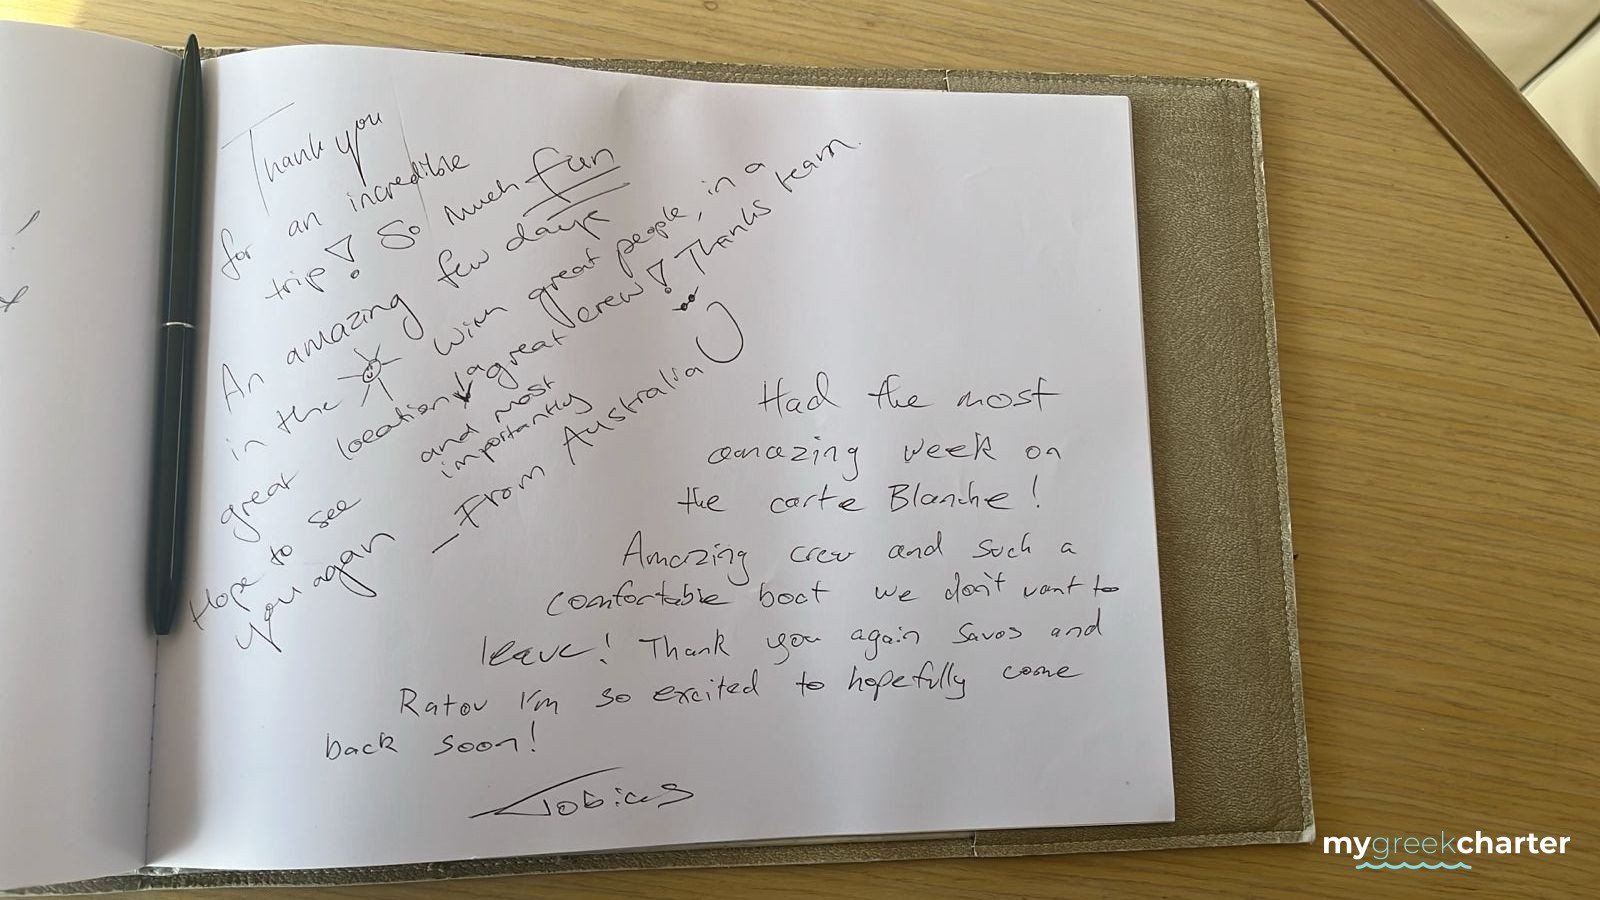 Thank you
for an incredible
trip! So much fun
An amazing few days
in the with great people, in a
great location, a great crew! Thanks team.
and most
importantly
Hope to see
you again
— From Australia
Had the most
amazing week on
the carte Blanche!
Amazing crew and such a
comfortable boat we don't want to
leave! Thank you again Savas and
Ratou I'm so excited to hopefully come
back soon!
Tobias
mygreekcharter